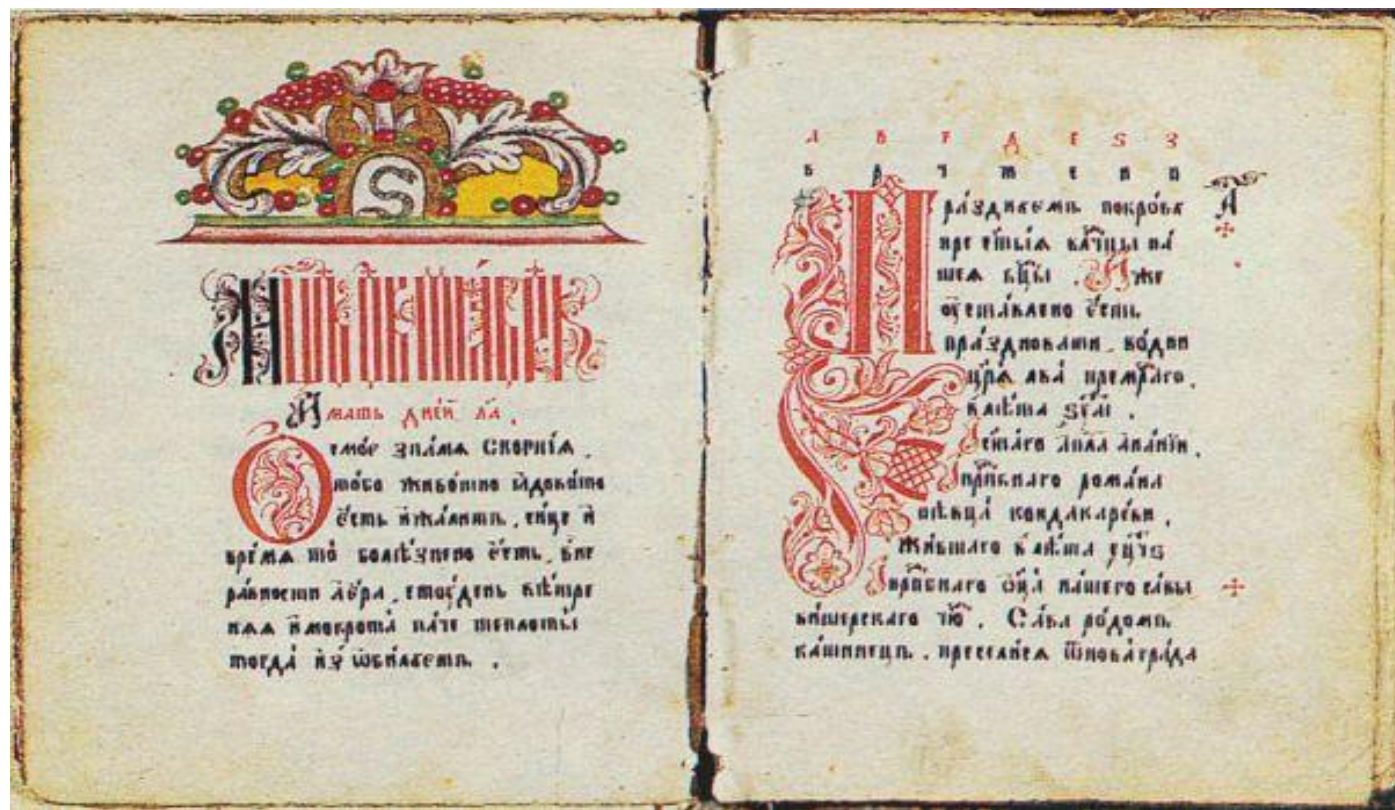 Имать дне́й ла.
семꙋ̀ зна́мя скорпі́а.
то́бо живо́тно ꙗ҆дови́то
е҆́сть и҆ жа́литъ. си́це и҆
вре́мя то̀ болѣ́знено е҆́сть. вне
ра́вности ае́ра. стꙋ́день вѣ́тре
ная и҆ мокрота̀ па́че теплоты̀
тогда̀ и҆з̾ ѡ҆би́лꙋетъ.
а в г д е ѕ з
Пра́зднꙋемъ покро́въ
а
пре ст҃ы́я влⷣчцы на́
шея бц҃ы. И҆́же
ᲂу҆ста́влено е҆́сть
пра́здновати. во дни
цр҃я льва̀ премⷣраго.
в лѣ́та
И҆ ст҃а́го а҆пⷭ҇ла а҆на́нїи.
И҆ прпⷣбнаго рома́на
пѣвца̀ кондакаре́ви.
жи́вшаго в лѣ́та
И҆ прпⷣбнаго ѻ҆ц҃а̀ на́шего са́вы
ви́шерскаго чю҃. Са́ва ро́домъ
ка́шинецъ. пресели́ся ѿ нова́ гра́да